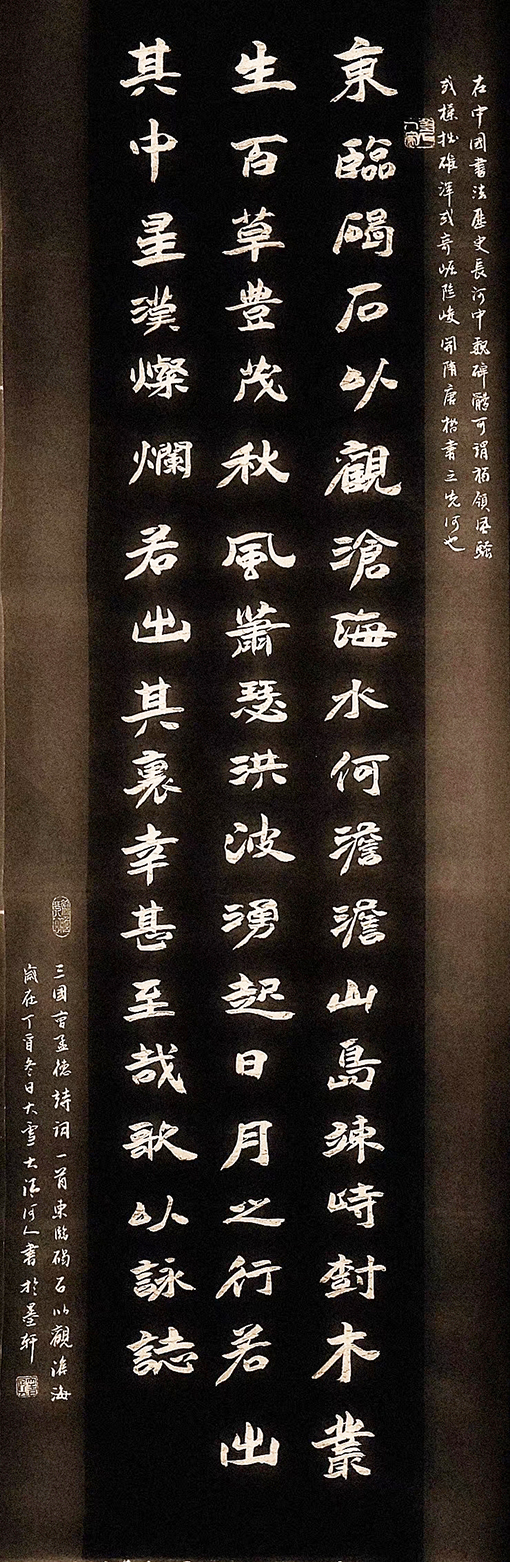 在中國書法歷史長河中魏碑體可谓獨領風騷
或樸拙雄渾或奇崛險峻開隋唐楷書之先河也
東臨碣石以觀滄海水何澹澹山島竦峙樹木叢
生百草豐茂秋風蕭瑟洪波湧起日月之行若出
其中星漢燦爛若出其裏幸甚至哉歌以詠誌
三國曹孟德詩詞一首東臨碣石以觀滄海
歲在丁酉冬日大雪大清河人書於墨軒